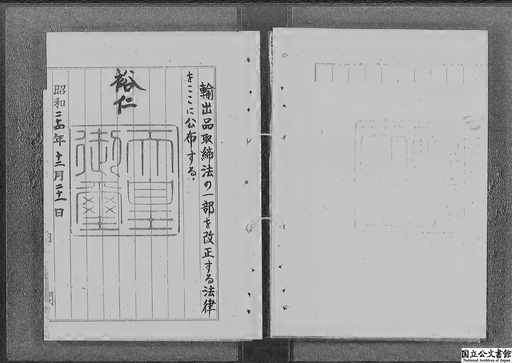 輸出品取締法の一部を改正する法律
をここに公布する。
裕仁
天皇
御璽
昭和二十四年十二月二十一日
国立公文書館
National Archives of Japan